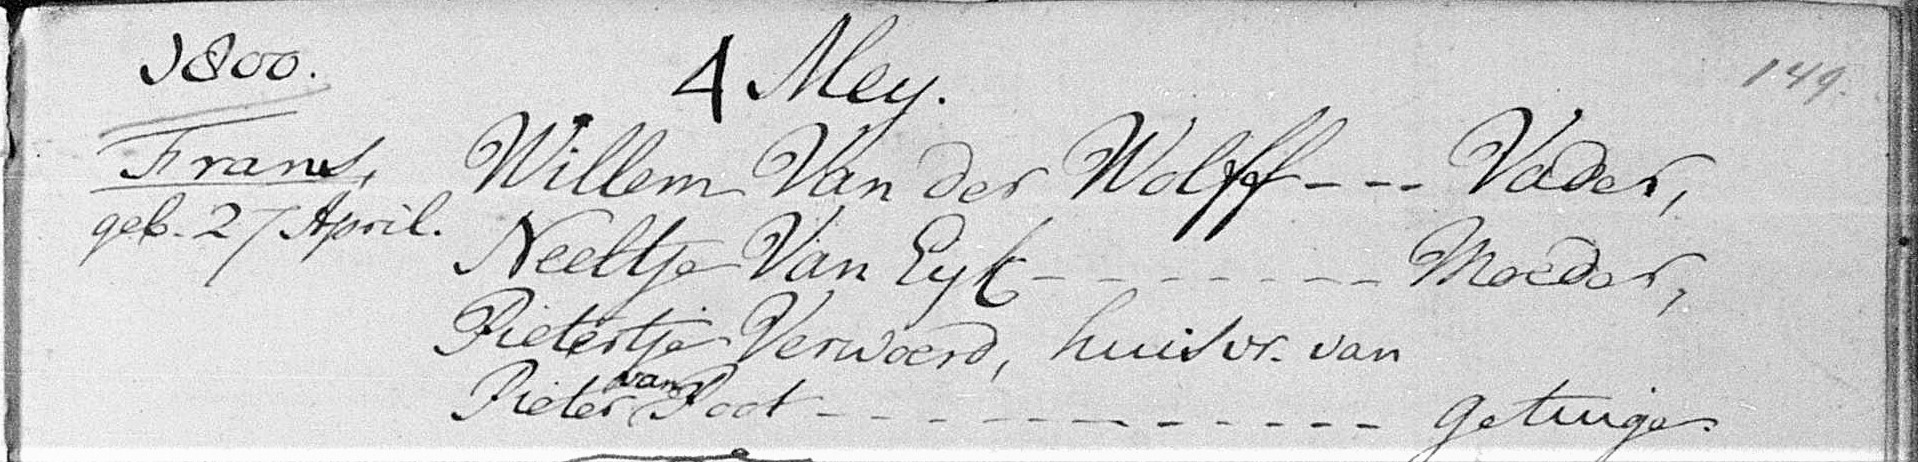 1800. 4 Mey. 149.
Frans, Willem Van der Wolff - - - Vader,
geb. 27 April. Neeltje Van Eyk - - - - - - - - Moeder,
Pietertje Verwoerd, huisvr. van
Pieter van Poot - - - - - - - - - - - getuige.